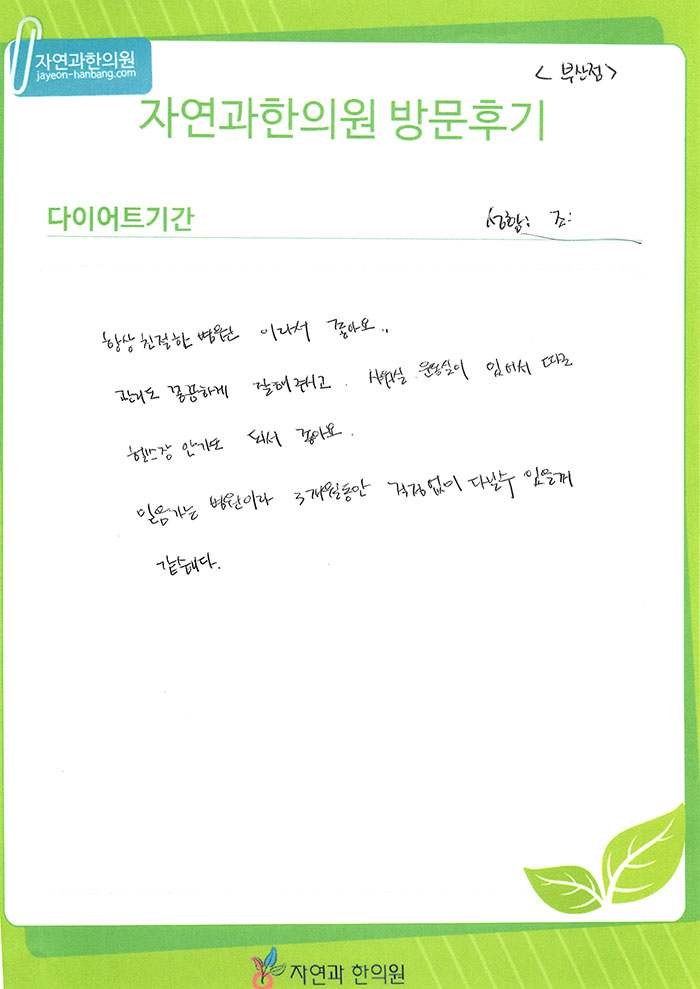 자연과한의원
jayeon-hanbang.com
< 부산점 >
자연과한의원 방문후기
다이어트기간
성함: 조
항상 친절한 병원 이라서 좋아요..
관리도 꼼꼼하게 잘해주시고. 샤워실 운동실이 있어서 따로
헬스장 안가도 되서 좋아요.
믿음가는 병원이라 3개월동안 걱정없이 다닐수 있을꺼
같습니다.
자연과 한의원